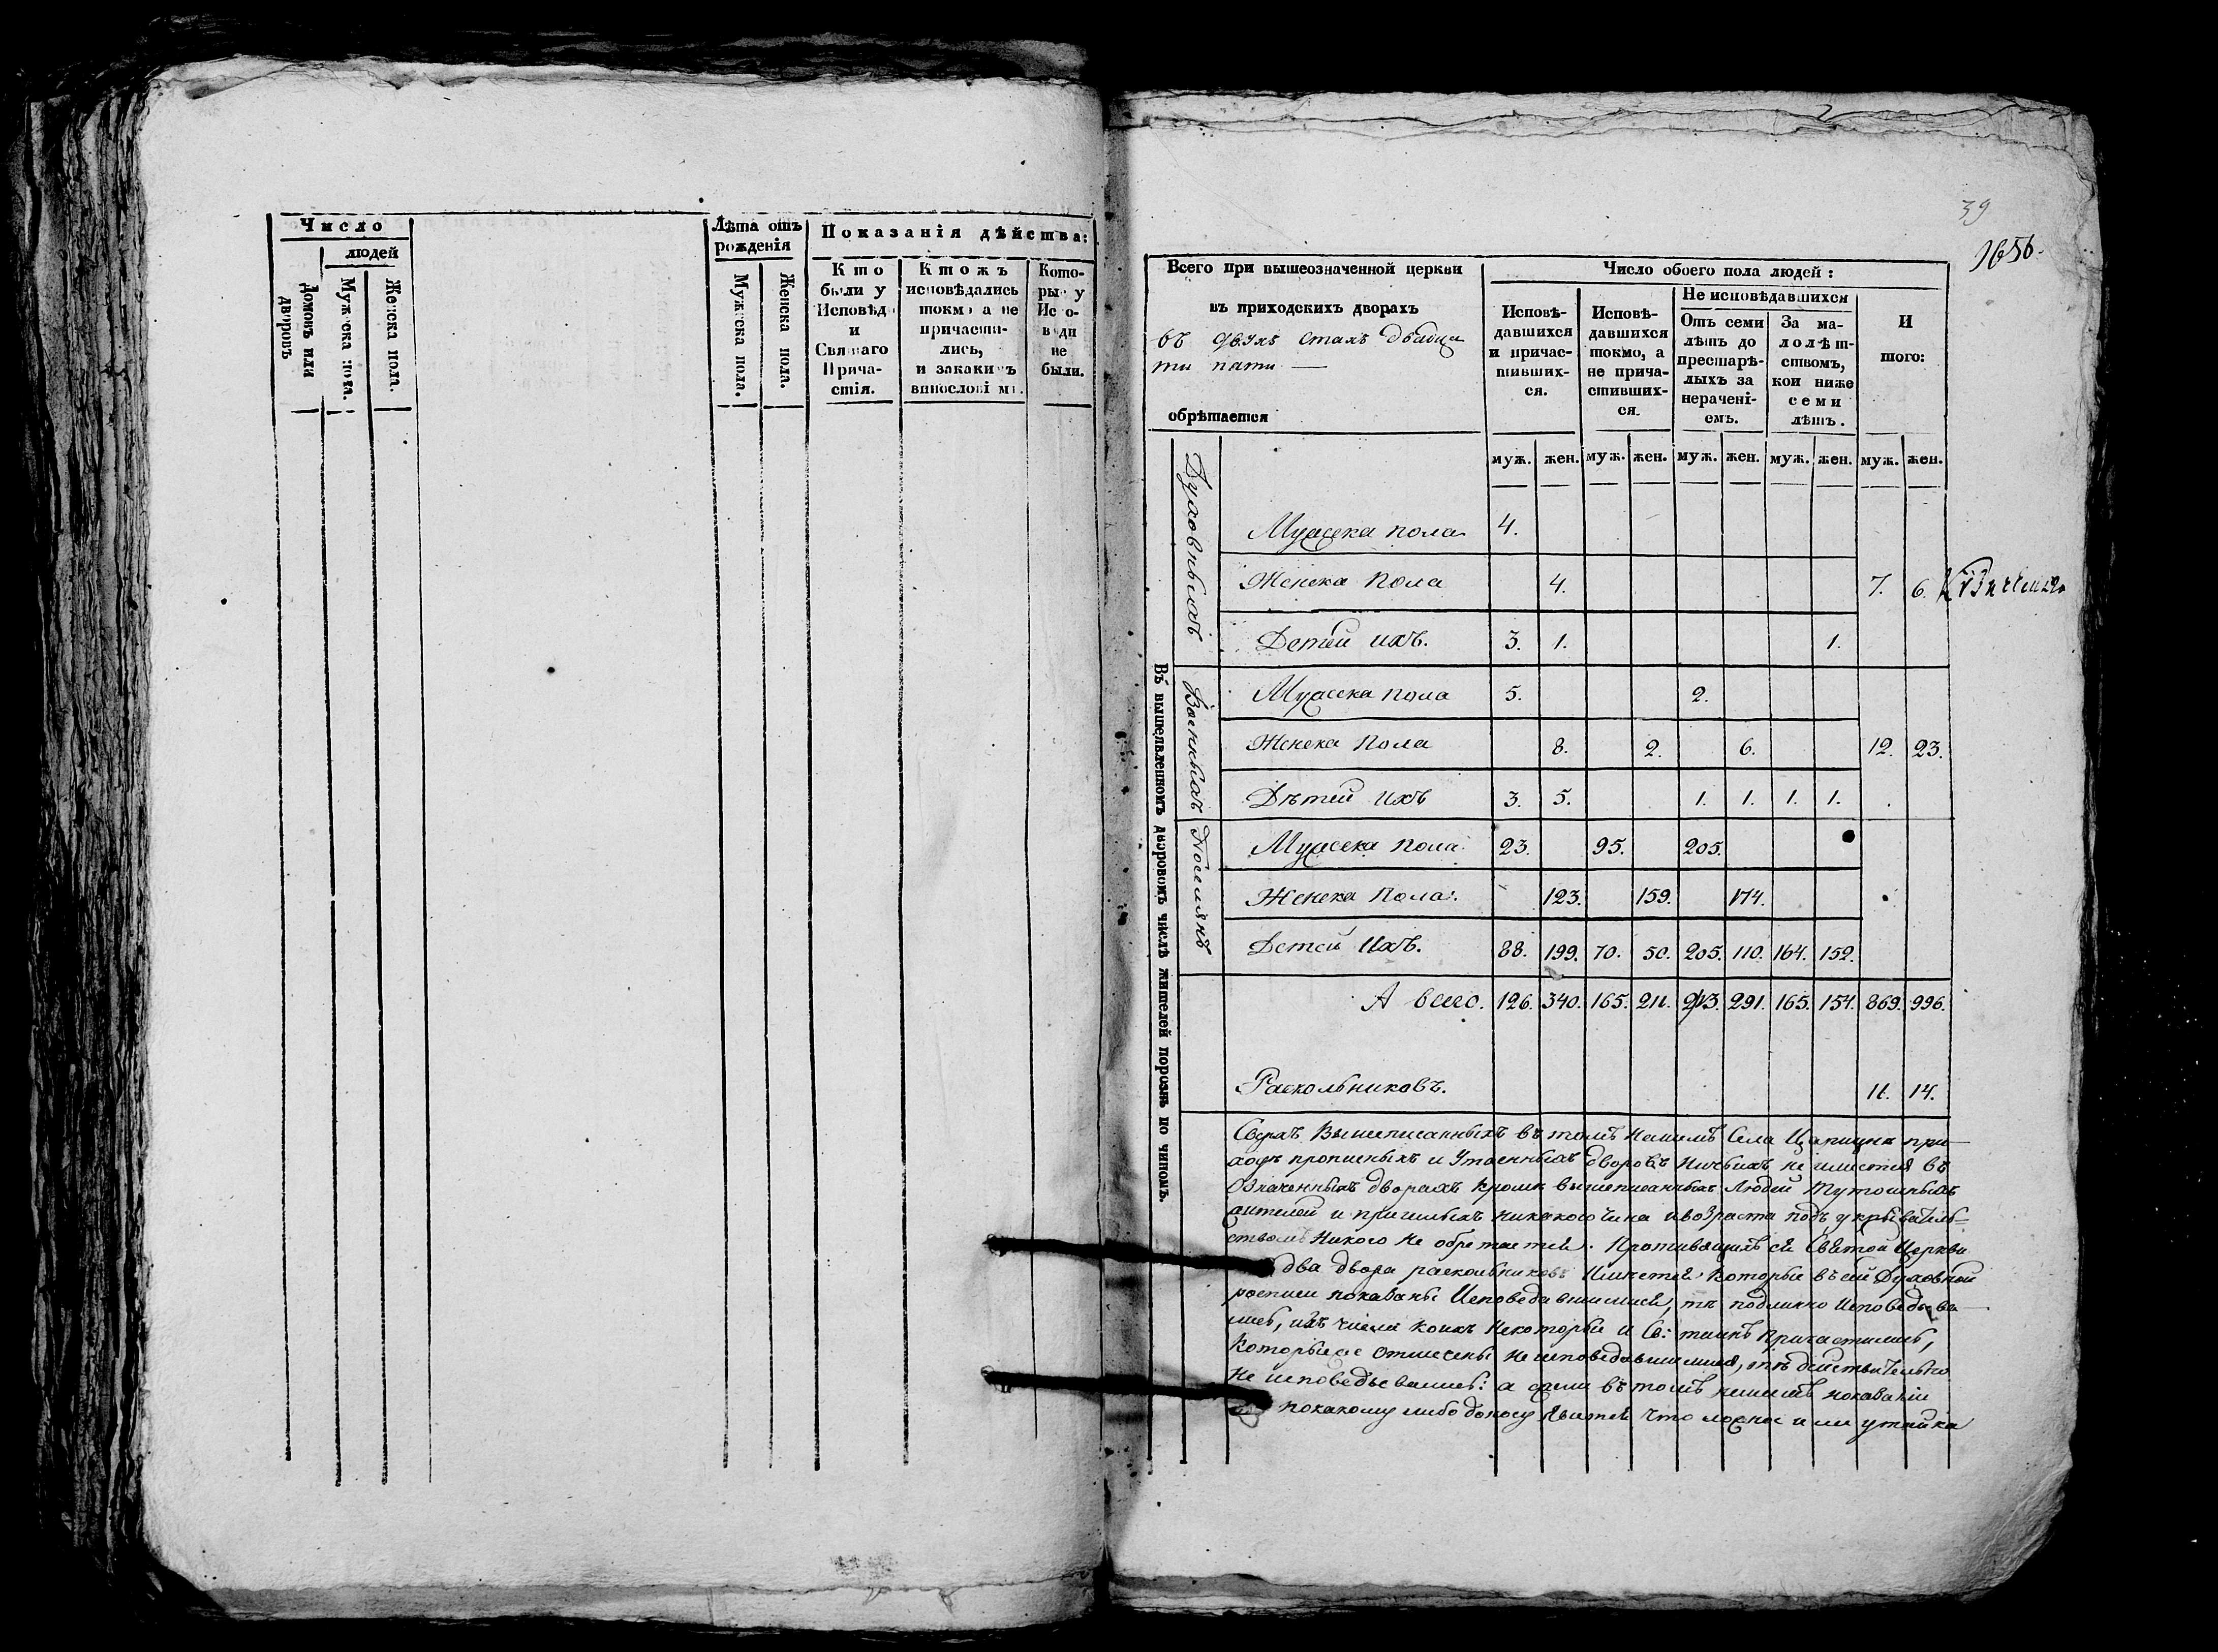 Число
людей
Домовъ или дворовъ
Мужеска пола.
Женска пола.
Лѣта отъ рожденія
Мужеска пола.
Женска пола.
Показанія дѣйства:
Кто были у Исповѣди и Святаго Причастія.
Ктожъ исповѣдались токмо а не причастились, и закакимъ винословіемъ.
Которые у Исповѣди не были.
39
1656.
Всего при вышеозначенной церкви
въ приходскихъ дворахъ
въ двухъ стахъ двадца
ти пяти —
обрѣтается
Число обоего пола людей:
Исповѣ-
давшихся
и причас-
тивших-
ся.
Исповѣ-
давшихся
токмо, а
не прича-
стивших-
ся.
Не исповѣдавшихся
Отъ семи
лѣтъ до
престарѣ-
лыхъ за
нерачені-
емъ.
За ма-
лолѣт-
ствомъ,
кои ниже
семи
лѣтъ.
И
того:
муж. жен. муж. жен. муж. жен. муж. жен. муж. жен.
Въ вышеявленномъ дворовомъ числѣ жителей порознь по чиномъ.
Духовныхъ
Мужеска пола 4.
Женска пола 4. 7. 6.
Детей ихъ. 3. 1. 1.
Военныхъ
Мужеска пола 5. 2.
Женска пола 8. 2. 6. 12. 23.
Дѣтей ихъ 3. 5. 1. 1. 1. 1.
Поселянъ
Мужеска пола 23. 95. 205.
Женска пола. 123. 159. 174.
Детей ихъ. 88. 199. 70. 50. 205. 110. 164. 152.
А всего. 126. 340. 165. 211. 413. 291. 165. 154. 869. 996.
Раскольниковъ. 11. 14.
Сверхъ вышеписанныхъ въ томъ нашемъ села при-
ходе прописныхъ и утаенныхъ дворовъ ничьихъ не имеется въ
означенныхъ дворахъ кроме вышеписанныхъ людей тутошныхъ
жителей и пришлыхъ никакого чина и возраста подъ укрыватель-
ствомъ никого не обретается. Противящихъся святой церкви
два двора раскольниковъ имеется. Которые въ сей духовной
росписи показаны исповедавшимися, те подлинно исповедыва-
лись, изъ числа коихъ некоторые и Св: таинъ причастились,
которые же отмечены не исповедавшимися, те действительно
не исповедывались: а ежели въ томъ нашемъ показаніи
покакому либо доносу явится что ложное или утайка